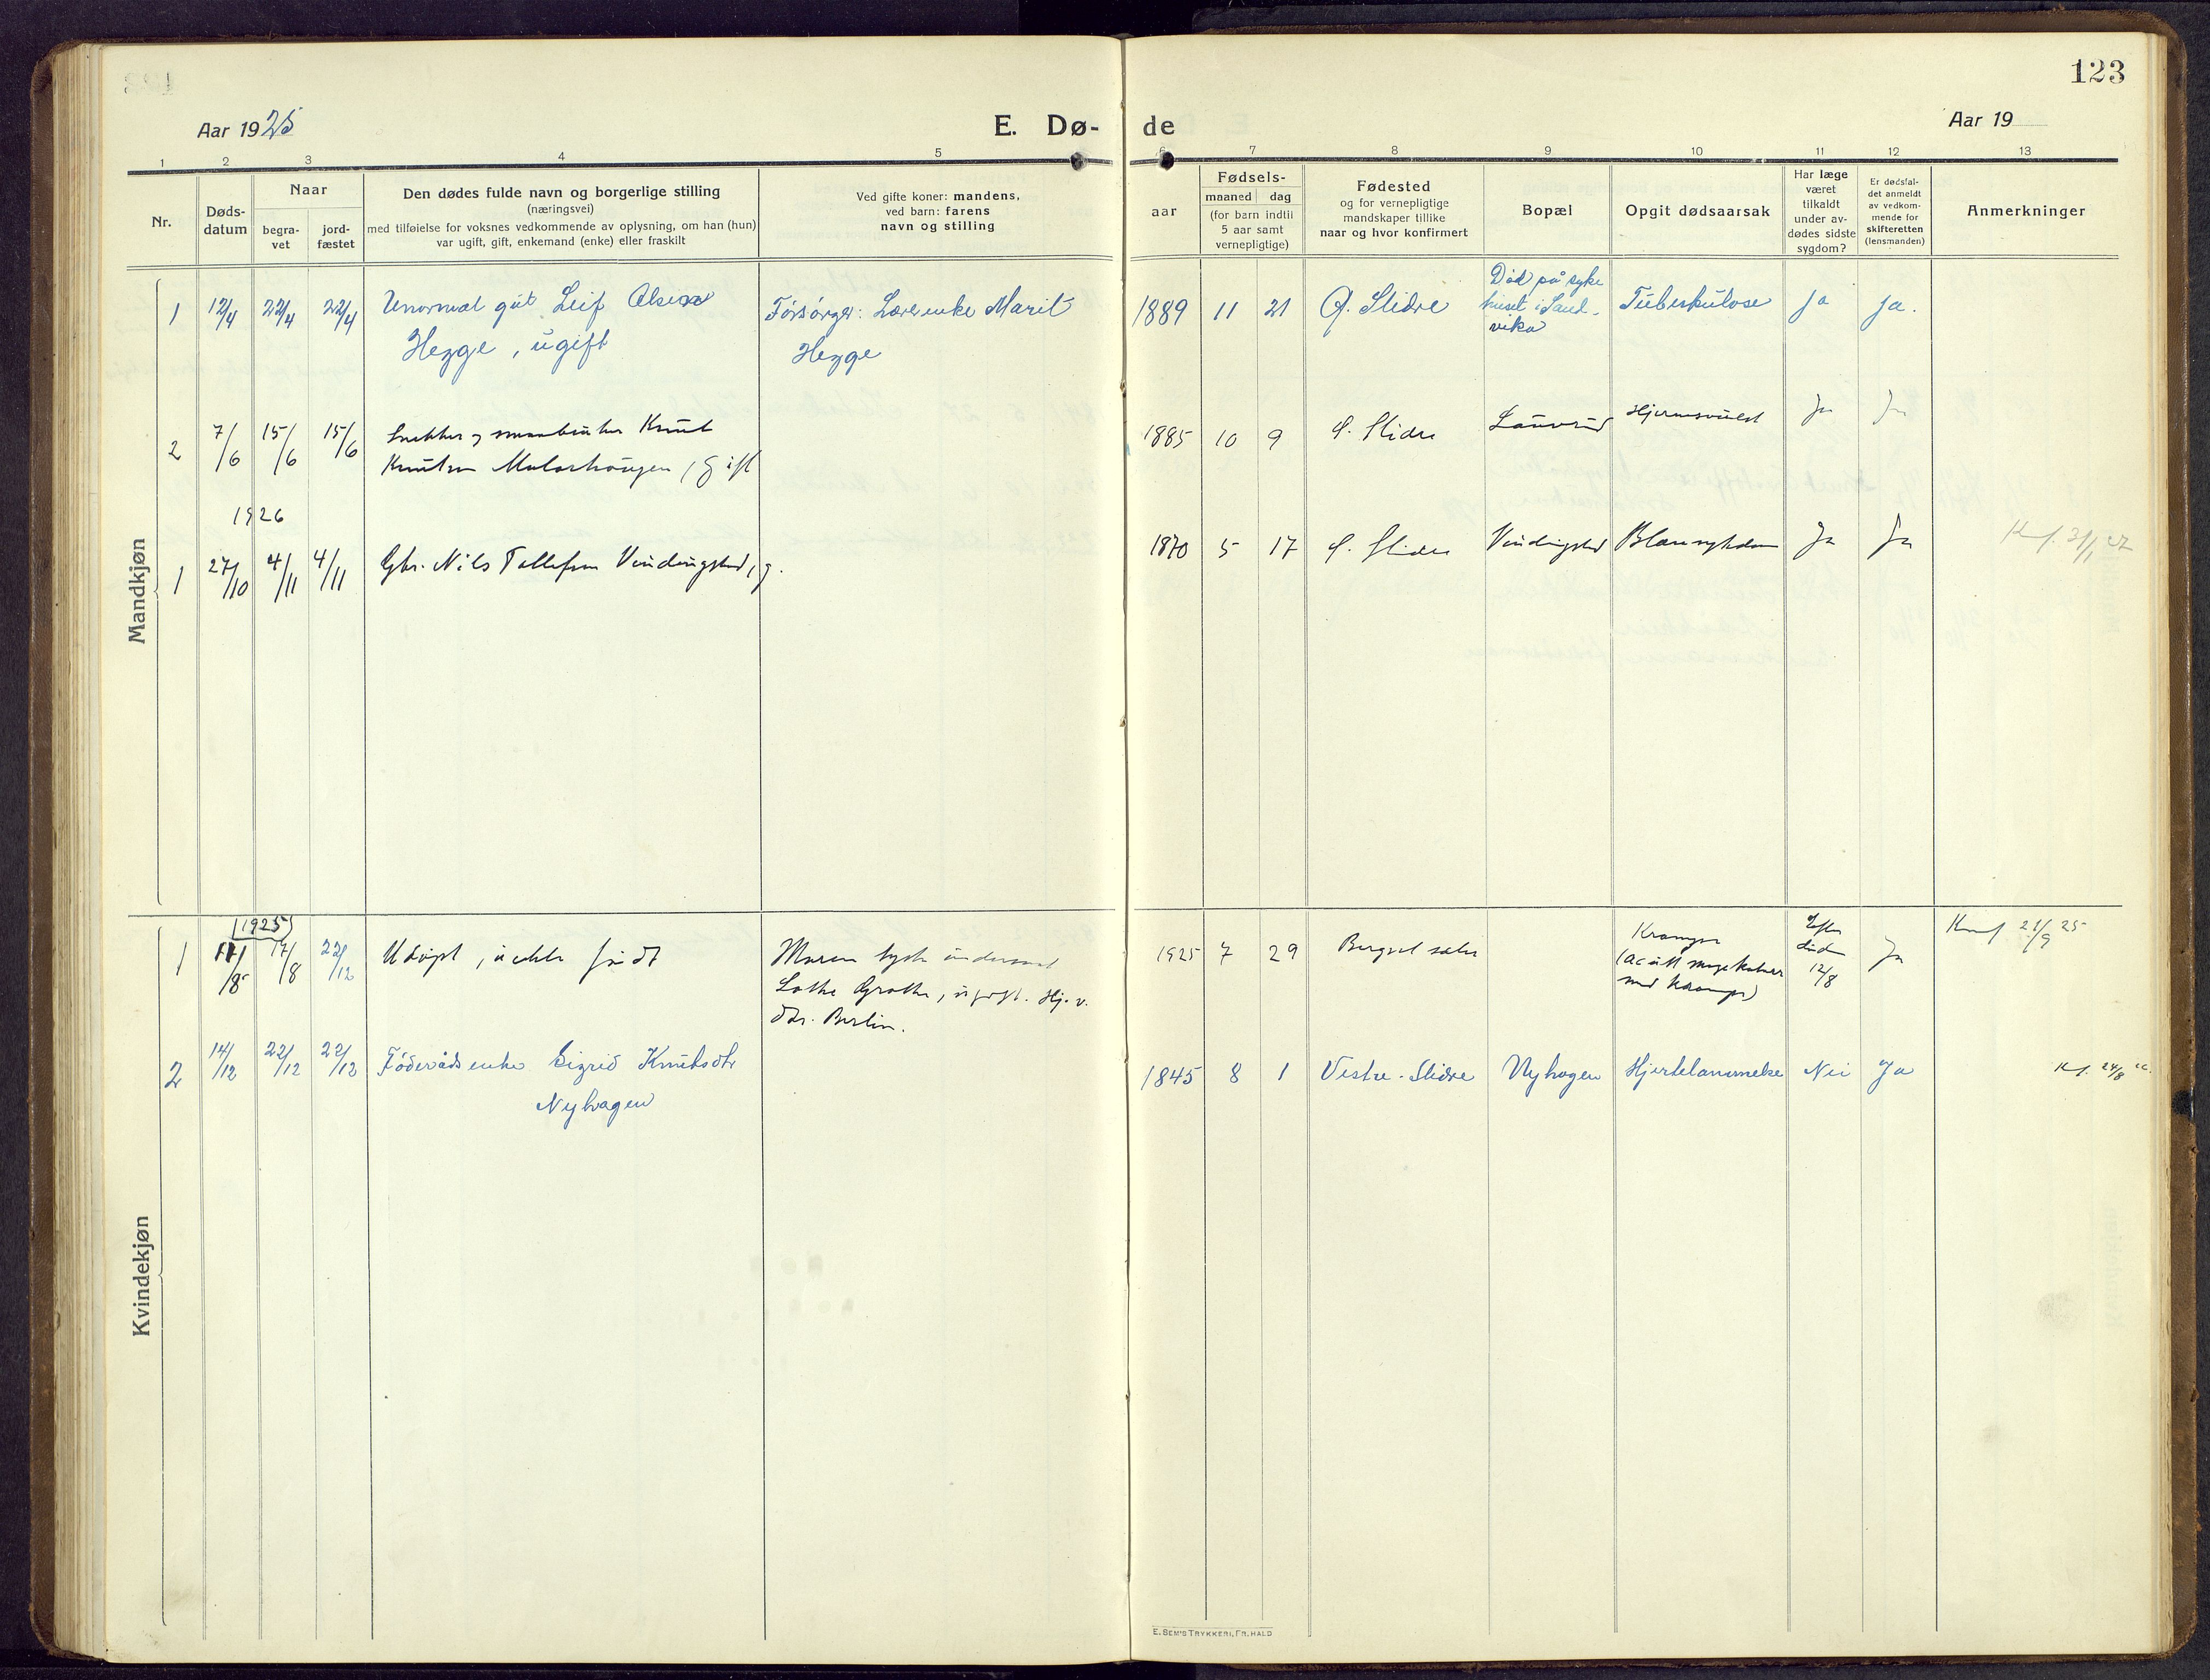 123
Aar 1925
E. Dø-
de
Aar 19
1 2 3 4 5 6 7 8 9 10 11 12 13
Nr.
Døds-
datum
Naar
begra-
vet
jord-
fæstet
Den dødes fulde navn og borgerlige stilling
(næringsvei)
med tilføielse for voksnes vedkommende av oplysning, om han (hun)
var ugift, gift, enkemand (enke) eller fraskilt
Ved gifte koner: mandens,
ved barn: farens
navn og stilling
aar
Fødsels-
maaned dag
(for barn indtil
5 aar samt
vernepligtige)
Fødested
og for vernepligtige
mandskaper tillike
naar og hvor konfirmert
Bopæl
Opgit dødsaarsak
Har læge
været
tilkaldt
under av-
dødes sidste
sygdom?
Er dødsfal-
det anmeldt
av vedkom-
mende for
skifteretten
(lensmanden)
Anmerkninger
Mandkjøn
1 12/4 22/4 22/4 Unormal gut Leif Olsen
Hegge, ugift
Forsørger: Lærerenke Marit
Hegge
1889 11 21 Ø. Slidre
Død på syke
huset i Sand-
vika
Tuberkulose ja ja.
2 7/6 15/6 15/6 Snekker og smaabruker Knut
Knutsen , gift
1885 10 9 Ø. Slidre Hjernesvulst Ja Ja
1926
1 27/10 4/11 4/11 Gbr. Nils Tollefsen Vindingstad, g.
1870 5 17 Ø. Slidre Vindingstad Ja Ja
Kvindekjøn
(1925)
1 17/8 22/12 Udøpt, uekte født
Moren tysk undersaat
Grothe, ugift. Hj. v.
Berlin.
1925 7 29
Krampe
med krampe)
Efter
døden
12/8
Ja
21/9 25
2 14/12 22/12 22/12 Føderåds enke Sigrid Knutsdtr
Nyhagen
1845 8 1 Vestre-Slidre Nyhagen Hjertelammelse Nei Ja
24/8
E. Sem's Trykkeri, Fr.hald